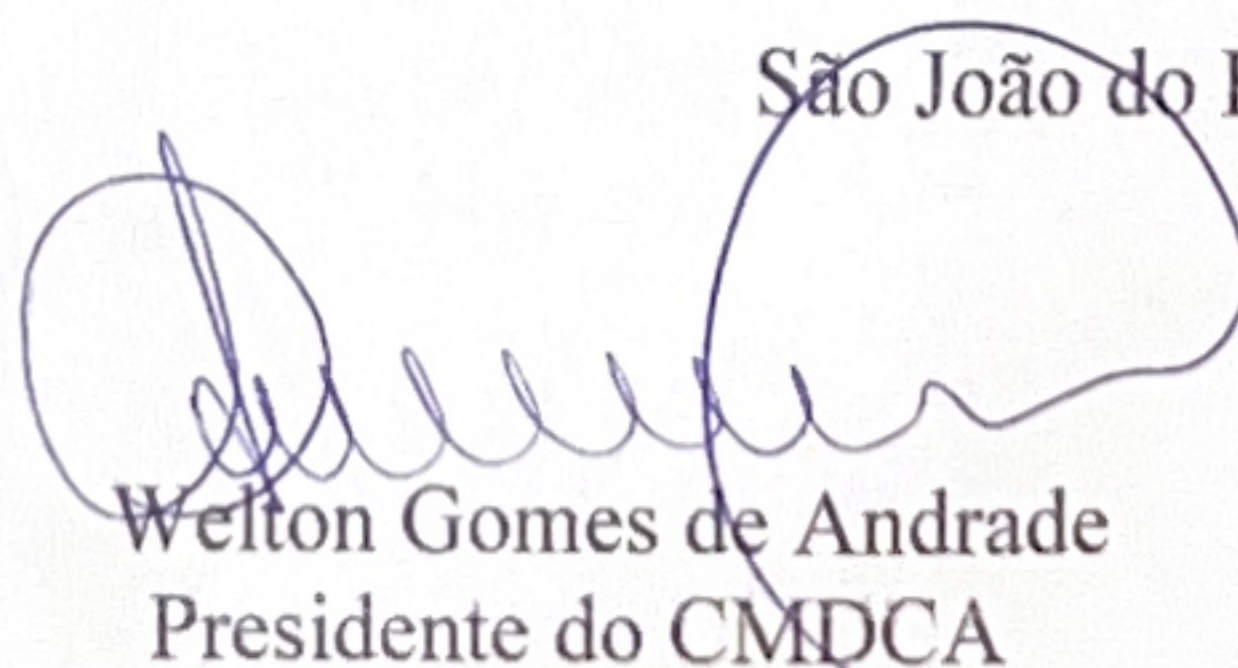 São João do
Welton Gomes de Andrade
Presidente do CMDCA